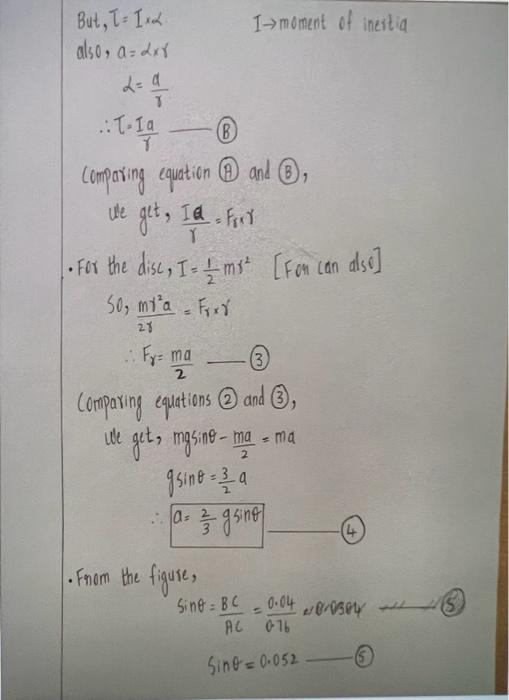 But, τ = I×α I→moment of inertia
also, a = α×r
α = a/r
∴ τ = Ia/r — Ⓑ
Comparing equation Ⓐ and Ⓑ,
We get, Ia/r = Fr×r
• For the disc, I = 1/2 mr² [For can also]
So, mr²a/2r = Fr×r
∴ Fr = ma/2 — ③
Comparing equations ② and ③,
We get, mgsinθ - ma/2 = ma
gsinθ = 3/2 a
∴ a = 2/3 gsinθ — ④
• From the figure,
Sinθ = BC/AC = 0.04/0.76
Sinθ = 0.052 — ⑤